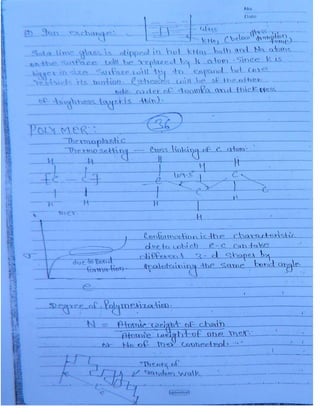 No
Date
Ion exchange:
glass
KNO3 (below glass transition temp)
Soda lime glass is dipped in hot KNO3 bath and Na atoms
on the surface will be replaced by K atom. Since K is
bigger in size surface will try to expand but core
restricts its motion. Stresses will be of the other
order of and thickness
of toughness layer is thin.
36
POLYMER:
Thermoplastic
Thermosetting — Cross linking of C atom
H H H H
C C C C C C
109.5°
H H H H H
mer
σ
due to bond
formation
e
Conformation is the characteristic
due to which C-C can take
different 3-d shapes by
maintaining the same bond angle
Degree of Polymerization:
N = Atomic weight of chain
Atomic weight of one mer.
No of mer connected.
Theory of
random walk